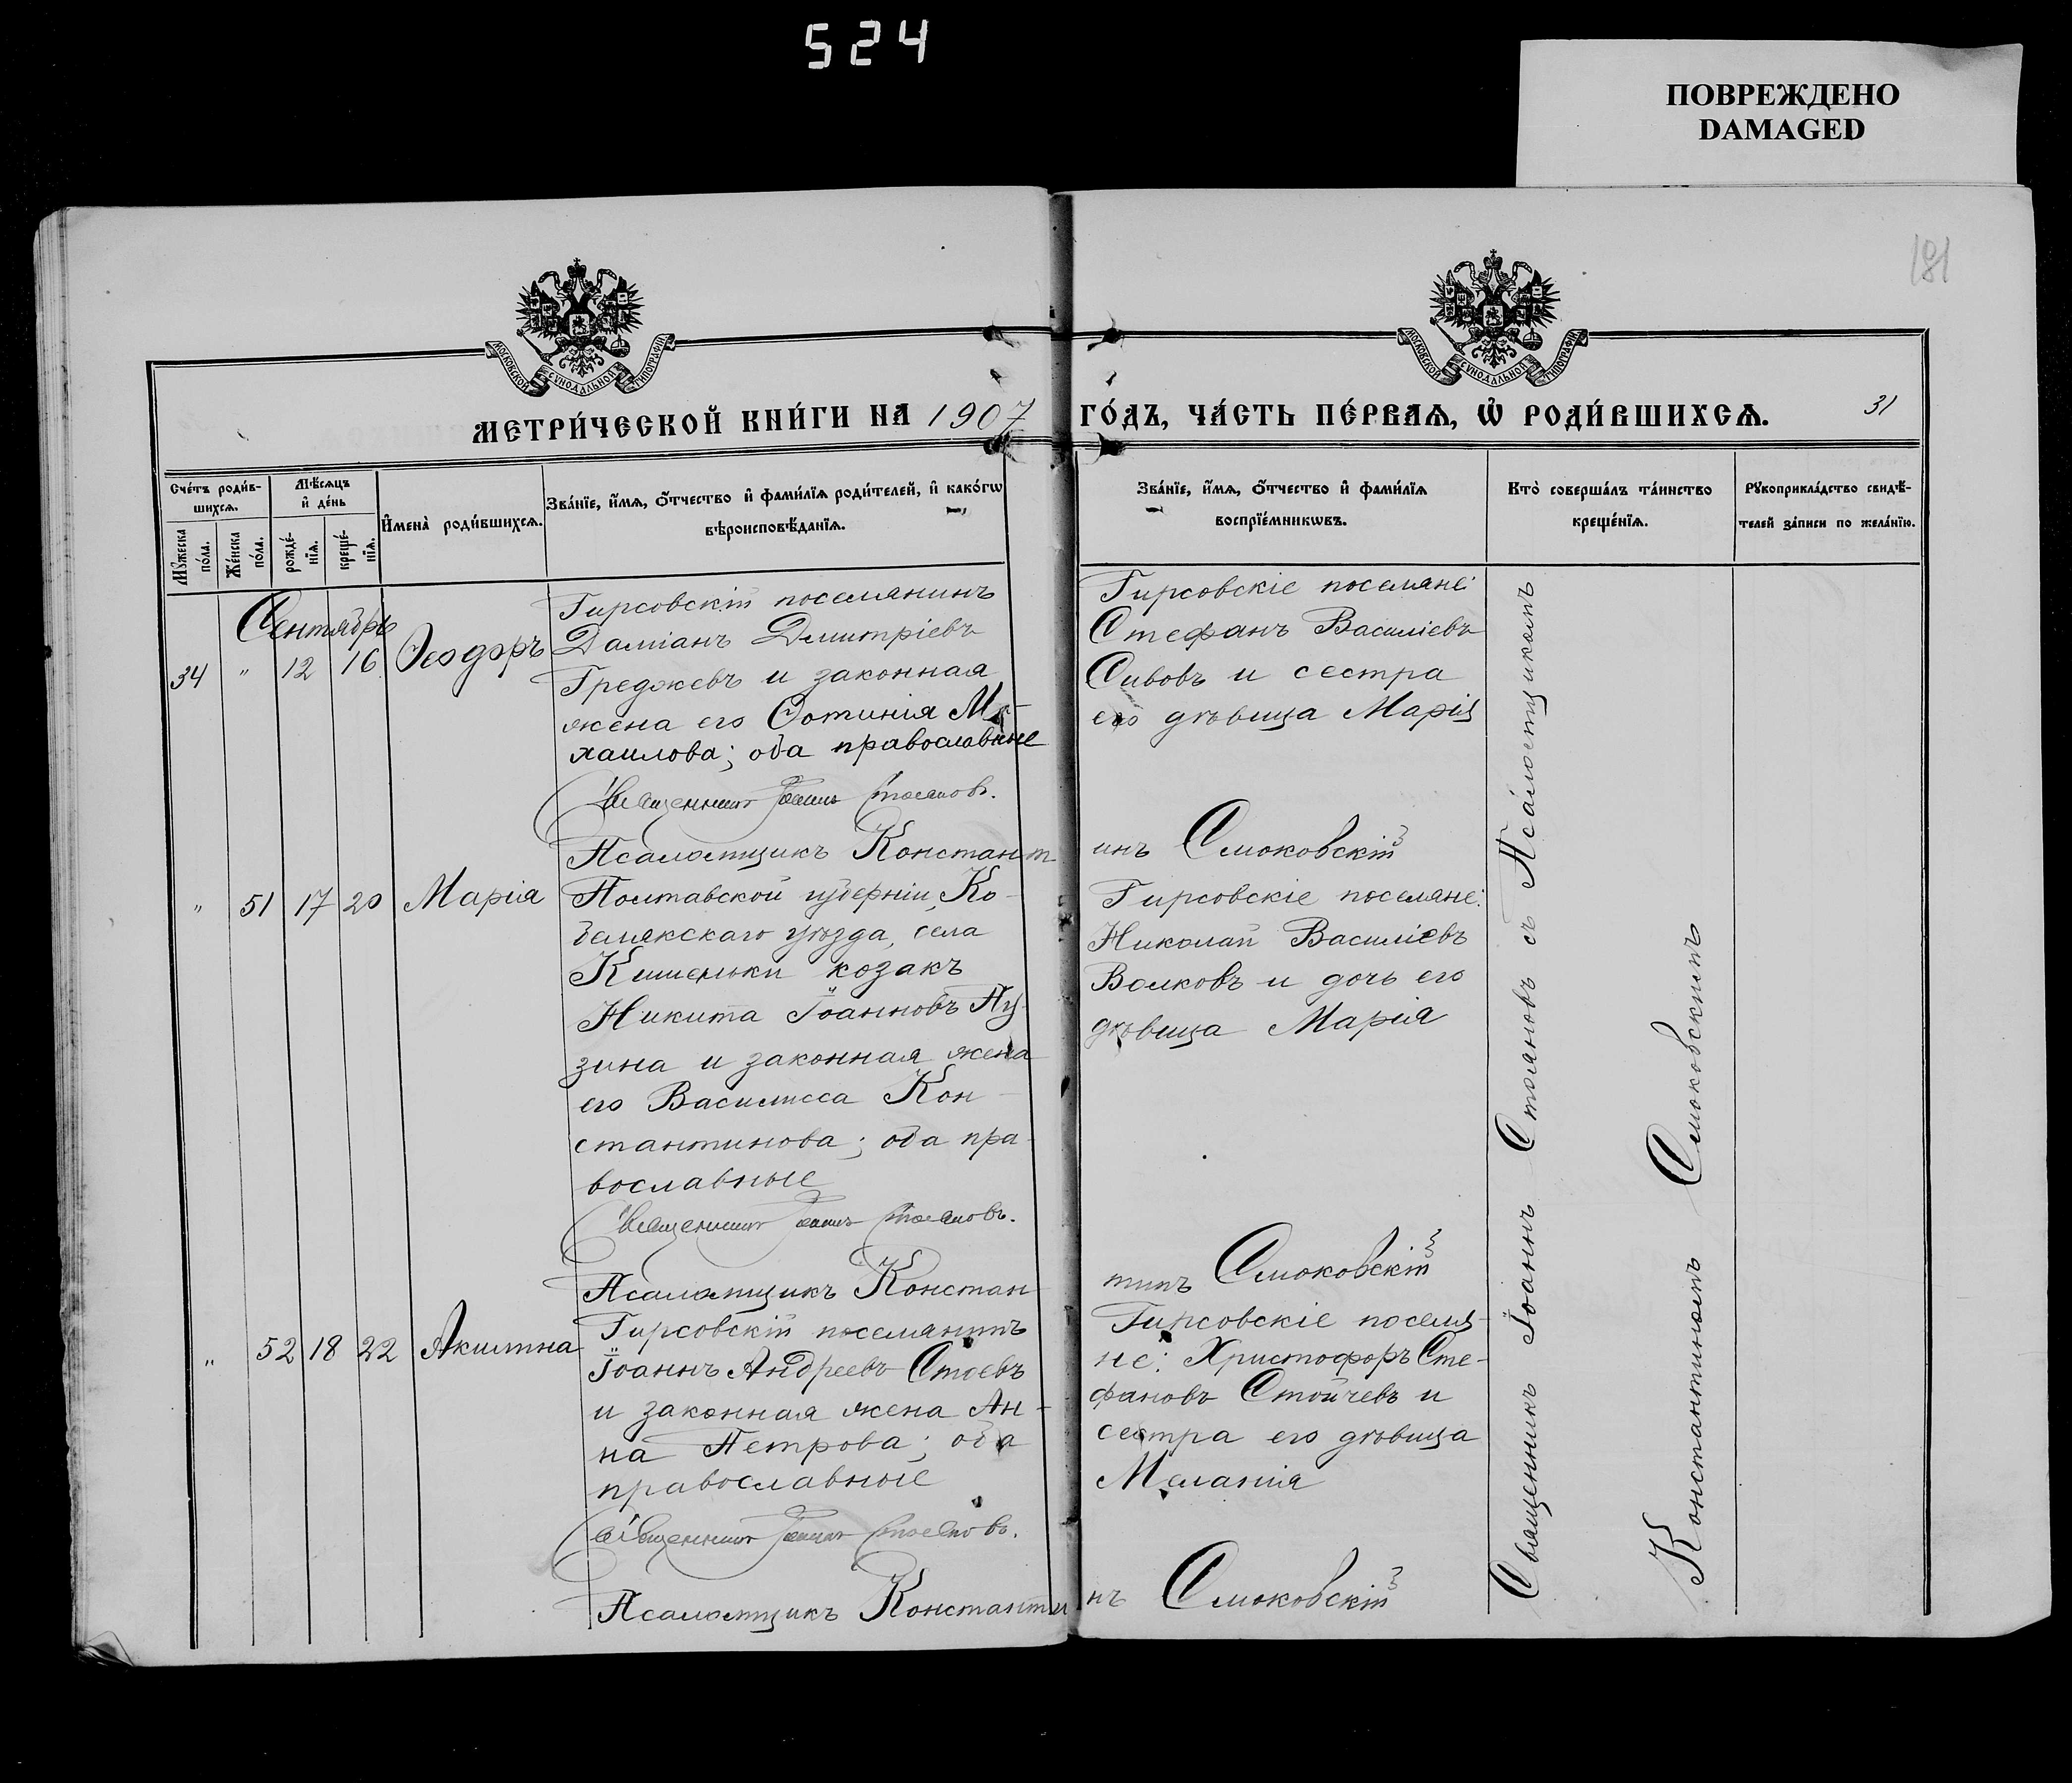 524
ПОВРЕЖДЕНО
DAMAGED
181
МОСКОВСКОЙ СѴНОДАЛЬНОЙ ТИПОГРАФІИ
МОСКОВСКОЙ СѴНОДАЛЬНОЙ ТИПОГРАФІИ
МЕТРИ́ЧЕСКОЙ КНИ́ГИ НА 1907 ГО́ДЪ, ЧА́СТЬ ПЕ́РВАѦ, Ѡ҆ РОДИ́ВШИХСѦ. 31
Сче́тъ роди́в-
шихсѧ.
Мꙋ́жеска
по́ла.
Же́нска
по́ла.
Мѣ́сѧцъ
и҆ де́нь
рожде́-
нїѧ.
креще́-
нїѧ.
И҆мена̀ роди́вшихсѧ.
Зва́нїе, и҆́мѧ, ѻ҆́тчество и҆ фами́лїѧ роди́телей, и҆ како́гѡ
вѣроисповѣ́данїѧ.
Зва́нїе, и҆́мѧ, ѻ҆́тчество и҆ фами́лїѧ
воспрїе́мникѡвъ.
Кто̀ соверша́лъ та́инство
креще́нїѧ.
Рꙋкоприкла́дство свидѣ́-
телей за́писи по жела́нїю.
Сентябрь
34 " 12 16 Ѳеодоръ
Гирсовскій поселянинъ
Даміанъ Дмитріевъ
Греджевъ и законная
жена его Фотинія Ми-
хаилова; оба православные
Священникъ Іоаннъ Стояновъ.
Псаломщикъ Константинъ Смоковскій
Гирсовскіе поселяне:
Стефанъ Василіевъ
Сивовъ и сестра
его дѣвица Марія
" 51 17 20 Марія
Полтавской губерніи, Ко-
белякскаго уѣзда, села
Кишеньки козакъ
Никита Іоанновъ Пу-
зина и законная жена
его Василисса Кон-
стантинова; оба пра-
вославные
Священникъ Іоаннъ Стояновъ.
Псаломщикъ Константинъ Смоковскій
Гирсовскіе поселяне:
Николай Василіевъ
Волковъ и дочь его
дѣвица Марія
" 52 18 22 Акилина
Гирсовскій поселянинъ
Іоаннъ Андреевъ Стоевъ
и законная жена Ан-
на Петрова; оба
православные
Священникъ Іоаннъ Стояновъ.
Псаломщикъ Константинъ Смоковскій
Гирсовскіе поселя-
не: Христофоръ Сте-
фановъ Стойчевъ и
сестра его дѣвица
Меланія
Священникъ Іоаннъ Стояновъ съ Псаломщикомъ
Константиномъ Смоковскимъ